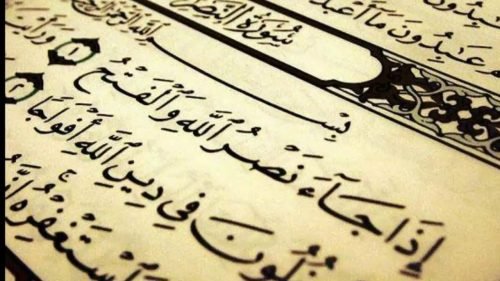 عَٰبِدُونَ مَآ أَعْبُدُ
سُورَةُ النَّصْرِ
بِسْمِ اللَّهِ الرَّحْمَٰنِ الرَّحِيمِ
إِذَا جَآءَ نَصْرُ اللَّهِ وَالْفَتْحُ ١ وَرَأَيْتَ
خُلُونَ فِي دِينِ اللَّهِ أَفْوَاجًا ٢
وَاسْتَغْفِرْهُ إِنَّهُ